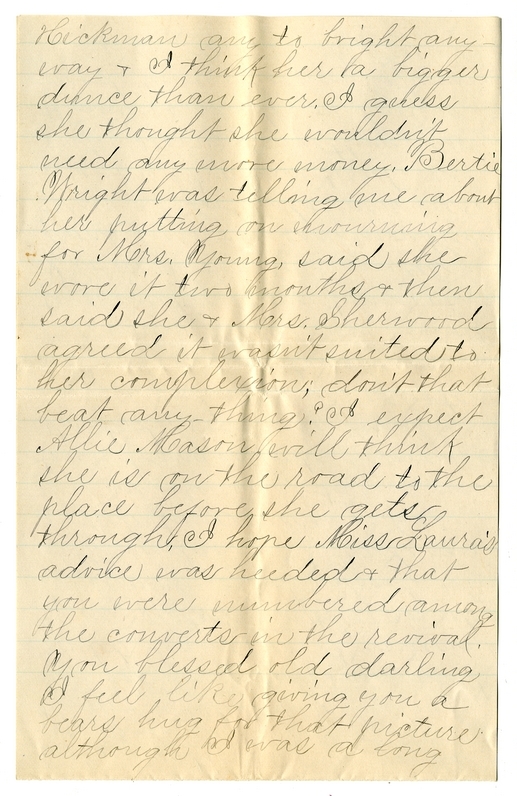 Hickman any to bright any-
way + I think her a bigger
dunce than ever. I guess
she thought she wouldn't
need any more money. Bertie
Wright was telling me about
her putting on mourning
for Mrs. Young, said she
wore it two months + then
said she + Mrs. Sherwood
agreed it wasn't suited to
her complexion; don't that
beat any-thing? I expect
Allie Mason will think
she is on the road to the
place before she gets
through. I hope Miss Laura's
advice was heeded + that
you were numbered among
the converts in the revival.
You blessed old darling
I feel like giving you a
bears hug for that picture
although I was a long